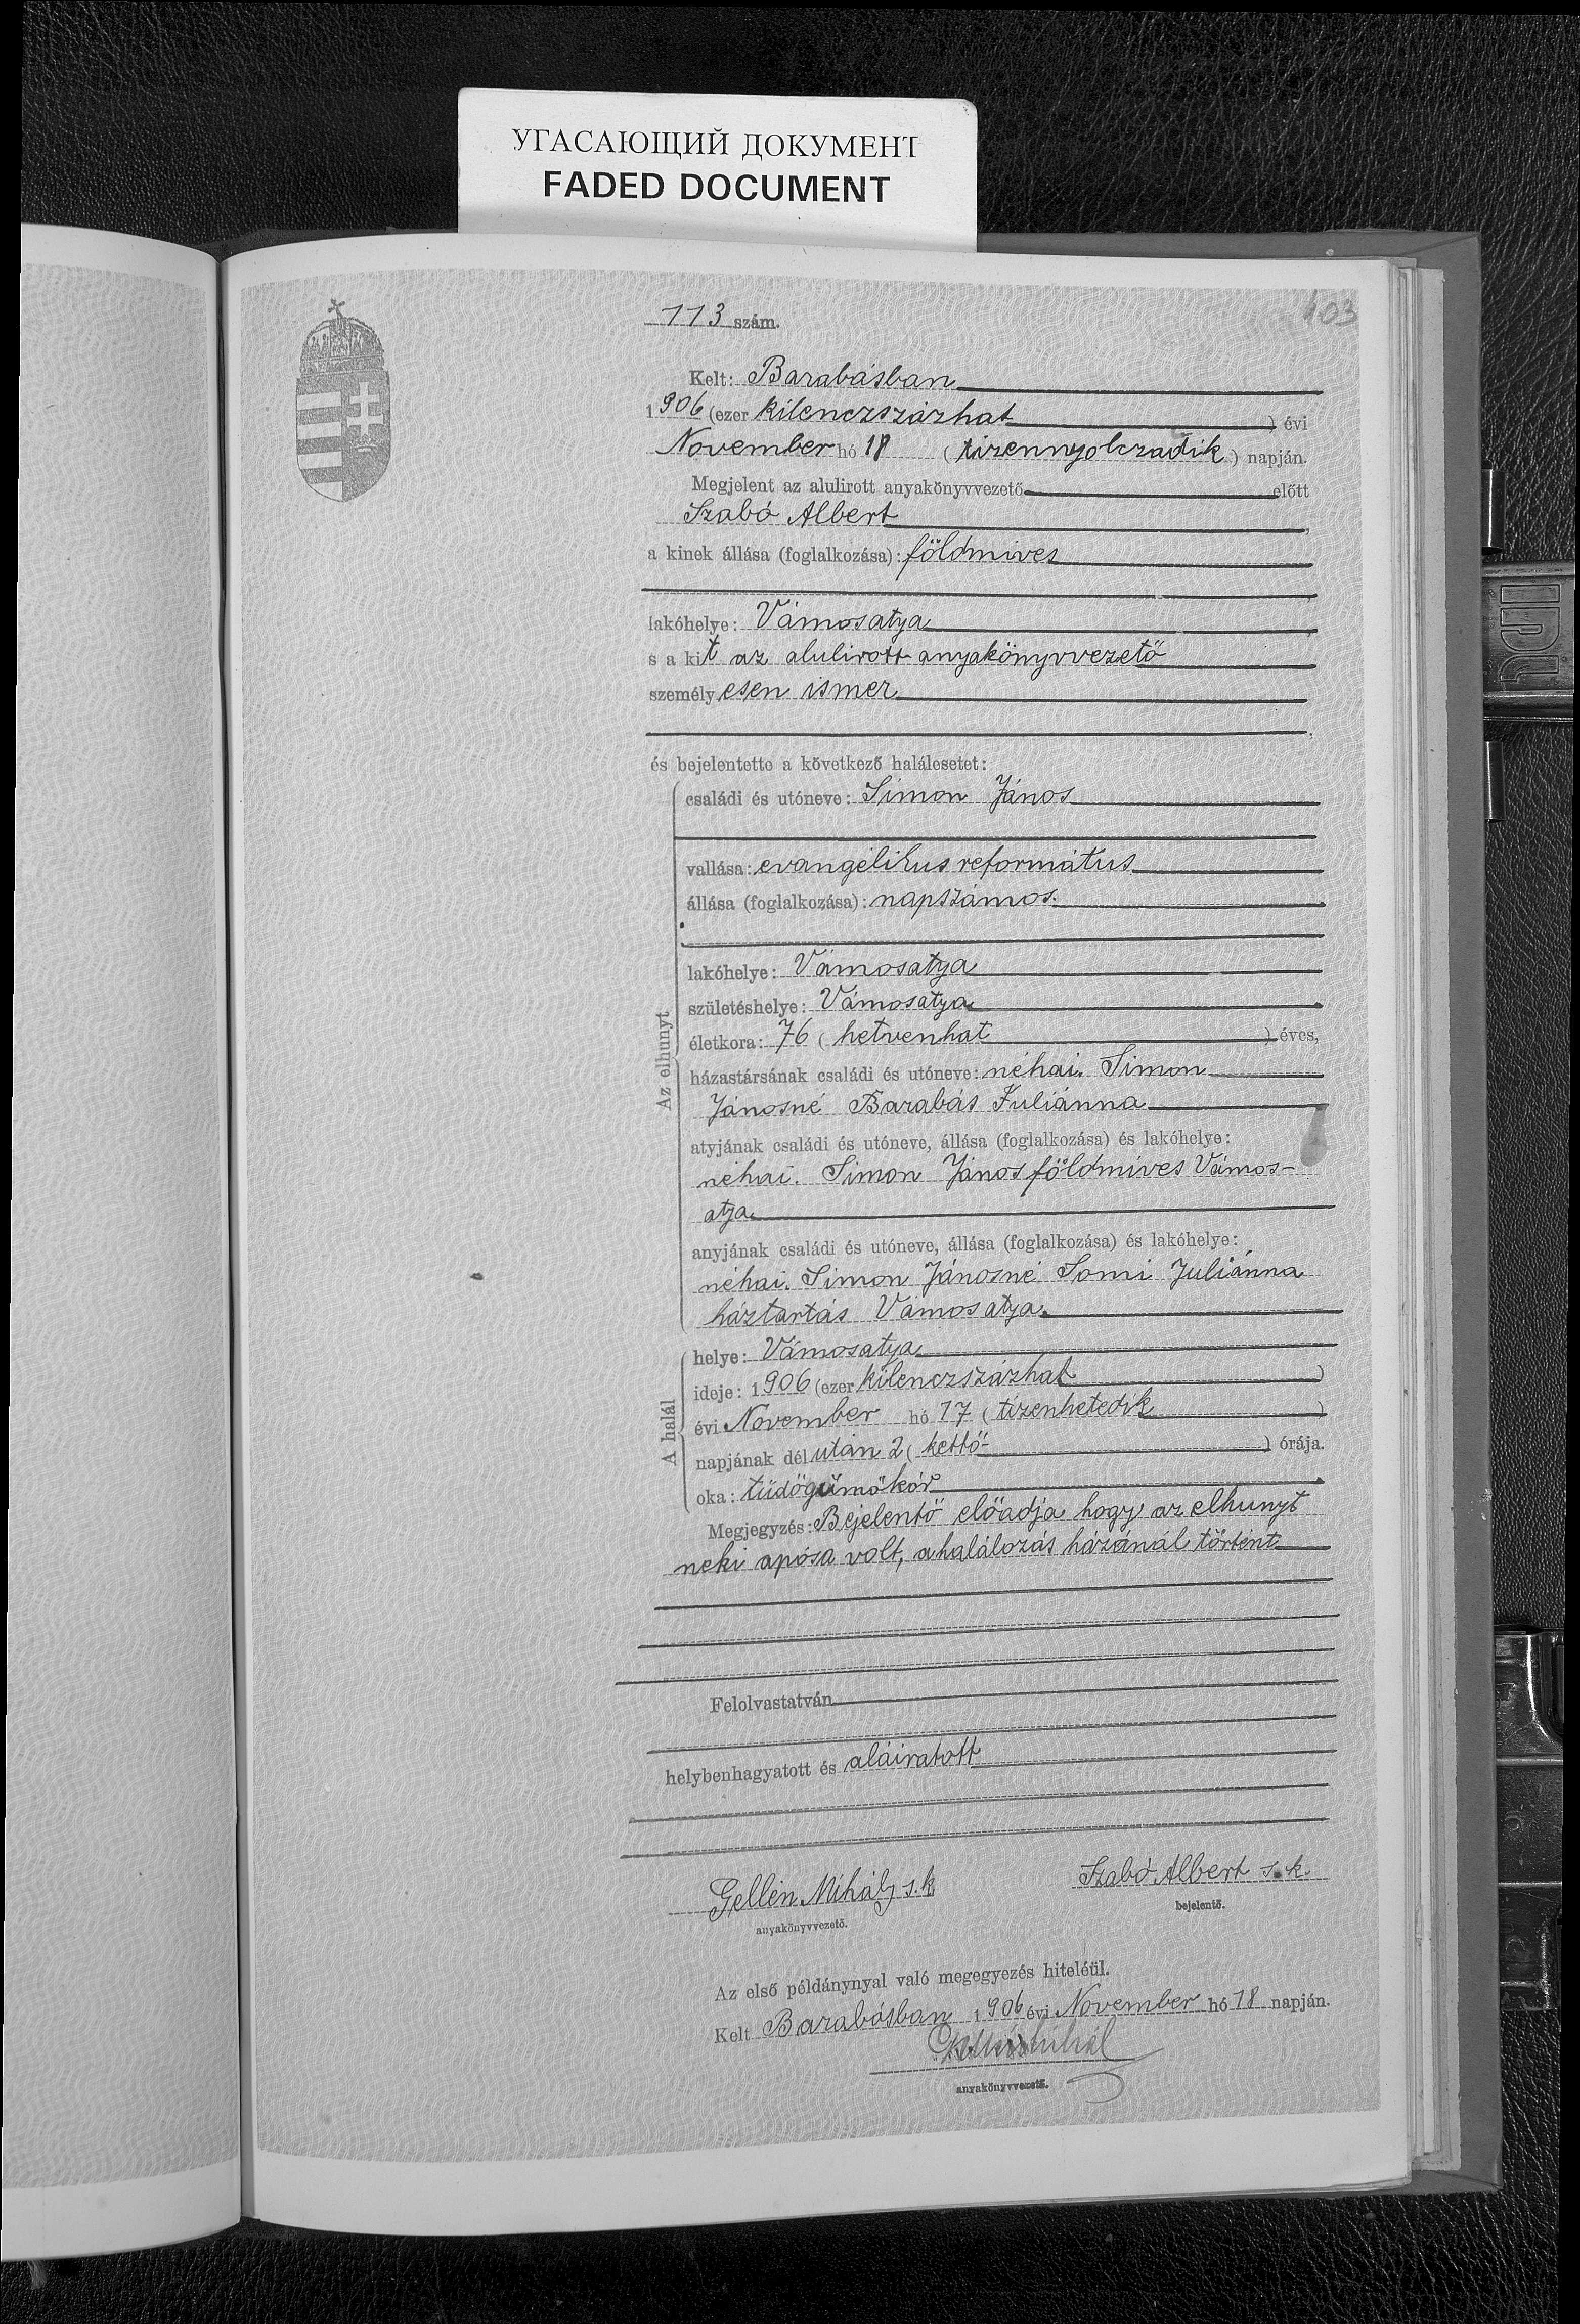 УГАСАЮЩИЙ ДОКУМЕНТ
FADED DOCUMENT
103
113 szám.
Kelt: Barabásban
1906 (ezer kilenczszázhat ) évi
November hó 18 (tizennyolczadik) napján.
Megjelent az alulirott anyakönyvvezető előtt
Szabó Albert,
a kinek állása (foglalkozása): földmives
lakóhelye: Vámosatya,
s a kit az alulirott anyakönyvvezető
személyesen ismer
és bejelentette a következő halálesetet:
Az elhunyt
családi és utóneve: Simon János
vallása: evangélikus református
állása (foglalkozása): napszámos.
lakóhelye: Vámosatya
születéshelye: Vámosatya
életkora: 76 (hetvenhat ) éves,
házastársának családi és utóneve: néhai. Simon
Jánosné Barabás Juliánna
atyjának családi és utóneve, állása (foglalkozása) és lakóhelye:
néhai. Simon János földmíves Vámos-
atya.
anyjának családi és utóneve, állása (foglalkozása) és lakóhelye:
néhai. Simon Jánosné Somi Juliánna
háztartás Vámosatya.
A halál
helye: Vámosatya
ideje: 1906 (ezer kilenczszázhat )
évi November hó 17 (tizenhetedik )
napjának dél után 2 (kettő- ) órája.
oka: tüdőgümőkór
Megjegyzés: Bejelentő előadja hogy az elhunyt
neki apósa volt, a halálozás házánál történt
Felolvastatván
helybenhagyatott és aláiratott
Gellén Mihály s.k. Szabó Albert s.k.
anyakönyvvezető. bejelentő.
Az első példánynyal való megegyezés hiteléül.
Kelt Barabásban 1906 évi November hó 18 napján.
anyakönyvvezető.